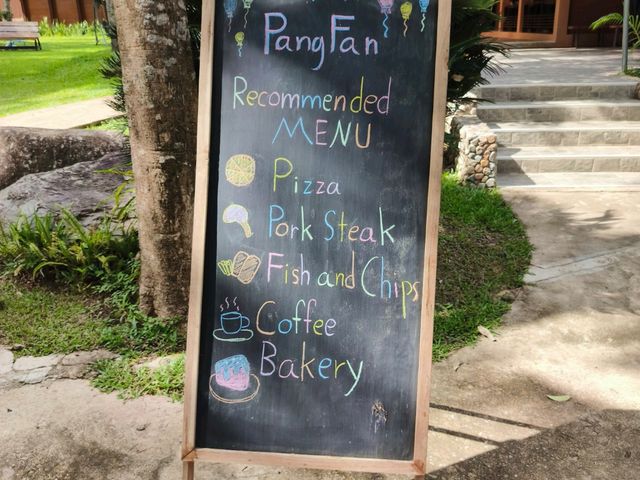 PangFan
Recommended
MENU
Pizza
Pork Steak
Fish and Chips
Coffee
Bakery